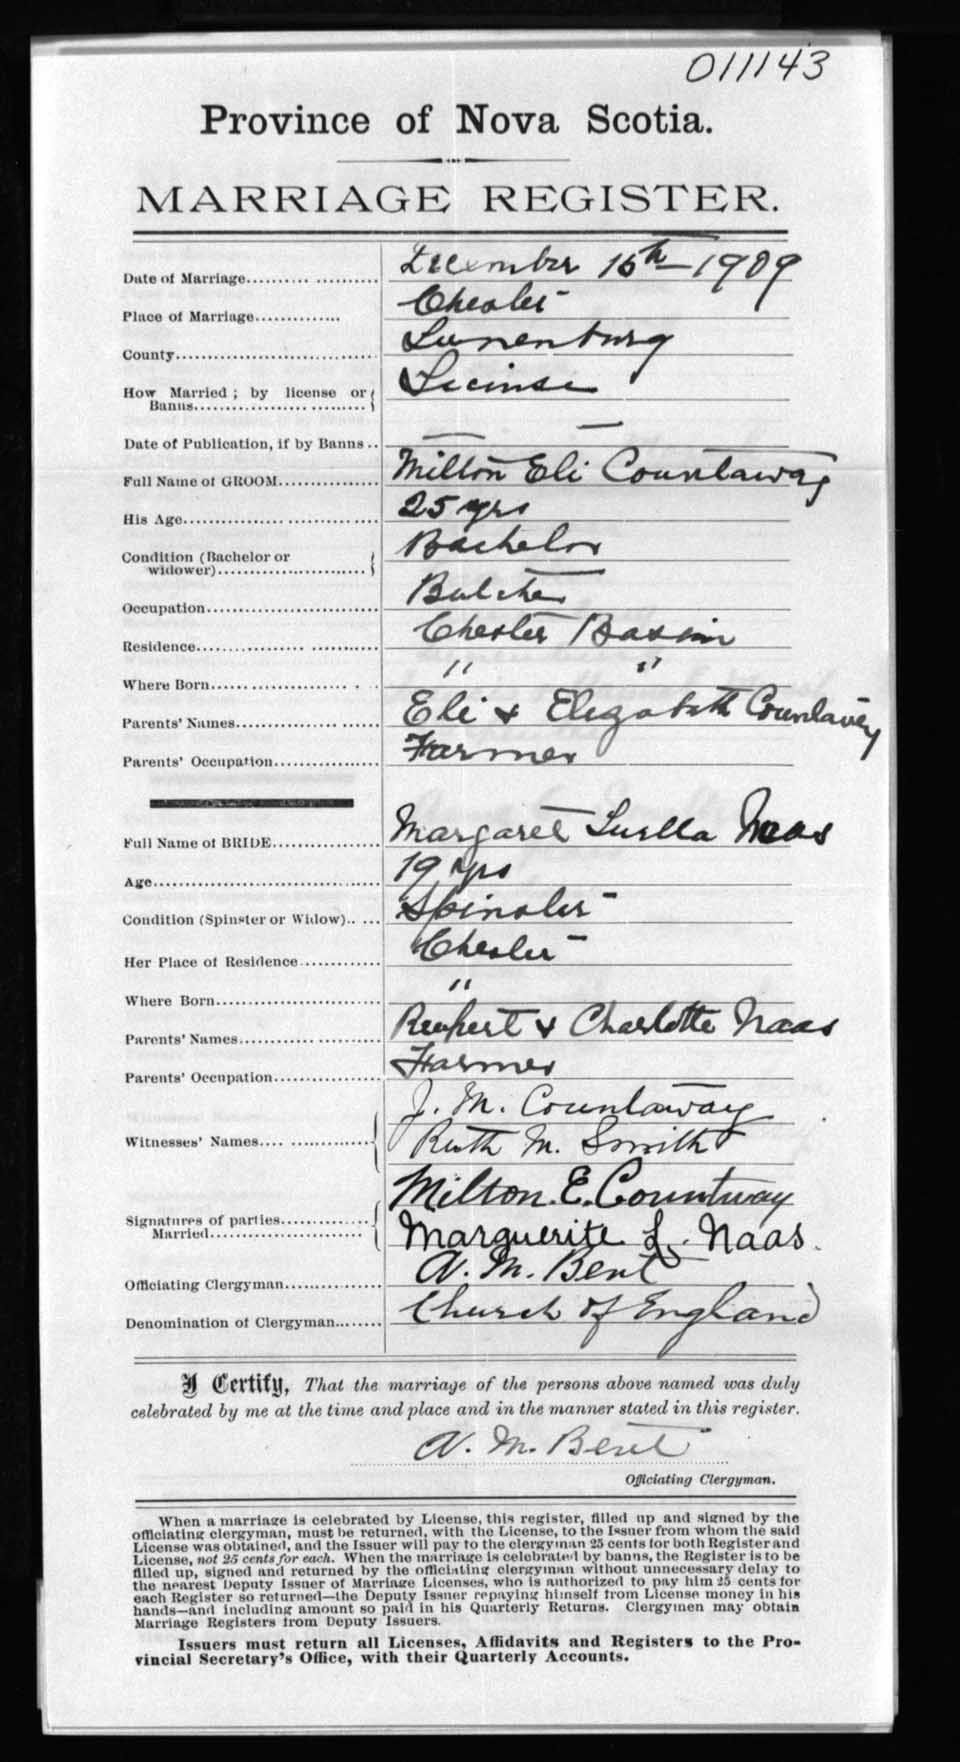 011143
Province of Nova Scotia.
MARRIAGE REGISTER.
Date of Marriage.................. December 15th 1909
Place of Marriage............. Chester
County............................ Lunenburg
How Married ; by license or
Banns........................... License
Date of Publication, if by Banns .. — —
Full Name of GROOM............... Milton Eli Countaway
His Age............................ 25 yrs
Condition (Bachelor or
widower)........................ Bachelor
Occupation.......................... Butcher
Residence........................ Chester Basin
Where Born.................... " "
Parents' Names................... Eli & Elizabeth Countaway
Parents' Occupation............... Farmer
Full Name of BRIDE............... Margaret Luella Naas
Age................................ 19 yrs
Condition (Spinster or Widow)..... Spinster
Her Place of Residence........... Chester
Where Born....................... "
Parents' Names.................... Reupert & Charlotte Naas
Parents' Occupation............... Farmer
J. M. Countaway
Witnesses' Names.... ............ Ruth M. Smith
Milton. E. Countway
Signatures of parties.............
Married....................... Marguerite L. Naas.
Officiating Clergyman............. A. M. Bent
Denomination of Clergyman........ Church of England
I Certify, That the marriage of the persons above named was duly
celebrated by me at the time and place and in the manner stated in this register.
A. M. Bent
Officiating Clergyman.
When a marriage is celebrated by License, this register, filled up and signed by the
officiating clergyman, must be returned, with the License, to the Issuer from whom the said
License was obtained, and the Issuer will pay to the clergyman 25 cents for both Register and
License, not 25 cents for each. When the marriage is celebrated by banns, the Register is to be
filled up, signed and returned by the officiating clergyman without unnecessary delay to
the nearest Deputy Issuer of Marriage Licenses, who is authorized to pay him 25 cents for
each Register so returned—the Deputy Issuer repaying himself from License money in his
hands—and including amount so paid in his Quarterly Returns. Clergymen may obtain
Marriage Registers from Deputy Issuers.
Issuers must return all Licenses, Affidavits and Registers to the Pro-
vincial Secretary's Office, with their Quarterly Accounts.